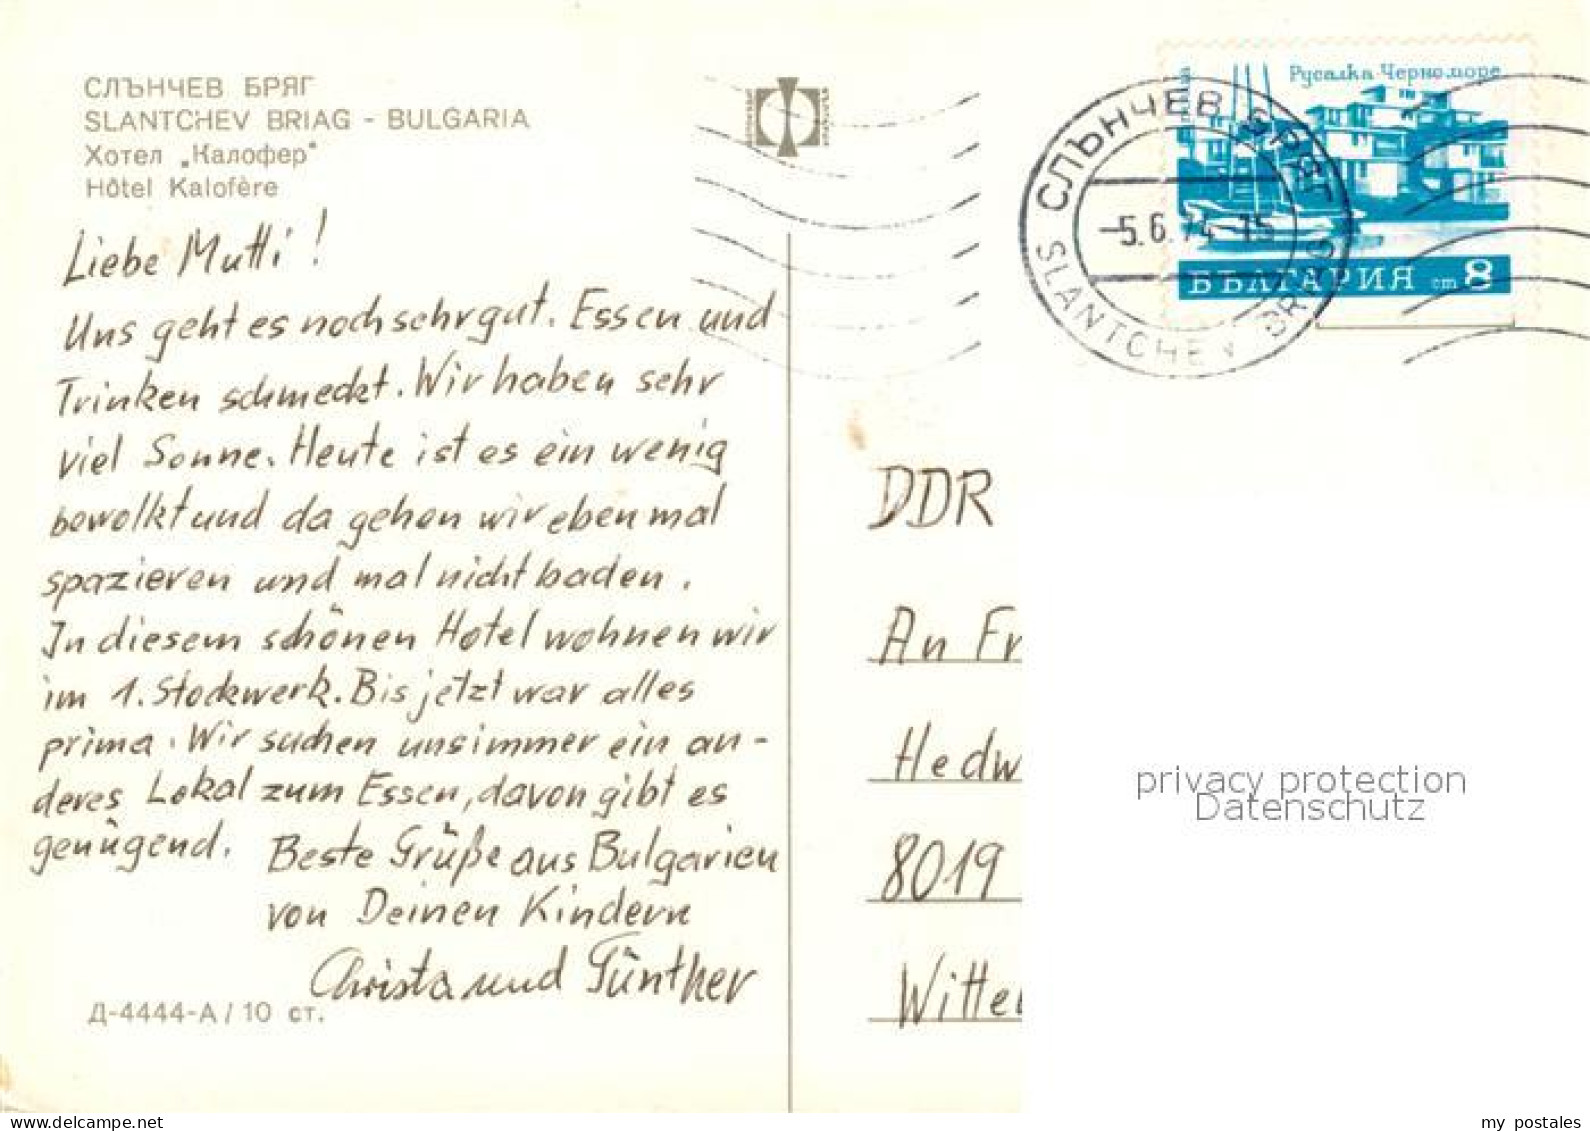 СЛЪНЧЕВ БРЯГ
SLANTCHEV BRIAG - BULGARIA
Хотел „Калофер“
Hôtel Kalofère
Liebe Mutti!
Uns geht es noch sehr gut. Essen und
Trinken schmeckt. Wir haben sehr
viel Sonne. Heute ist es ein wenig
bewolkt und da gehen wir eben mal
spazieren und mal nicht baden.
In diesem schönen Hotel wohnen wir
im 1. Stockwerk. Bis jetzt war alles
prima. Wir suchen uns immer ein an-
deres Lokal zum Essen, davon gibt es
genügend. Beste Grüße aus Bulgarien
von Deinen Kindern
Christa und Günther
Д-4444-А / 10 ст.
Русалка Черно море
БЪЛГАРИЯ ст 8
СЛЪНЧЕВ БРЯГ
-5.6.74-15
SLANTCHEV BRIAG
DDR
An Fr
Hedw
8019
Witte
privacy protection
Datenschutz
my postales